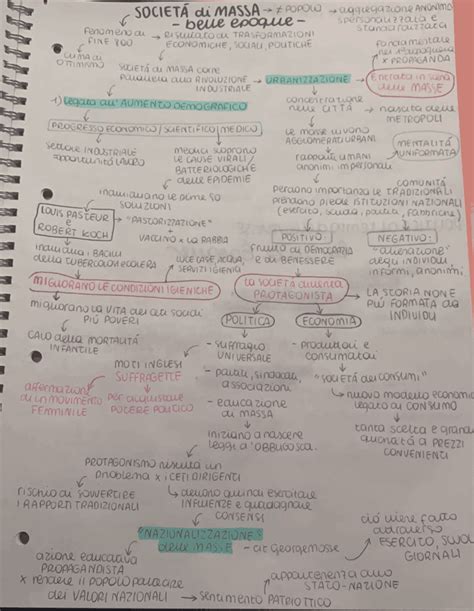 SOCIETÀ di MASSA → ≠ POPOLO → aggregazione ANONIMA
spersonalizzata e
standardizzata
- belle epoque -
fenomeno di FINE '800 → Risultato di TRASFORMAZIONI
ECONOMICHE, SOCIALI, POLITICHE
clima di
OTTIMISMO
fondamentale
nel dopoguerra
x PROPAGANDA
SOCIETÀ di MASSA come
parallela alla RIVOLUZIONE
INDUSTRIALE
→ URBANIZZAZIONE → Entrata in scena
delle MASSE
1) legata all'AUMENTO DEMOGRAFICO
PROGRESSO ECONOMICO/SCIENTIFICO/MEDICO
concentrazione
nelle CITTÀ → nascita delle
METROPOLI
settore INDUSTRIALE
opportunità LAVORO
medici scoprono
le CAUSE VIRALI/
BATTERIOLOGICHE
delle EPIDEMIE
le masse vivono
AGGLOMERATI URBANI
MENTALITÀ
UNIFORMATA
rapporti UMANI
anonimi, impersonali
individuano le prime
SOLUZIONI
Perdono importanza le COMUNITÀ TRADIZIONALI
prendono piede ISTITUZIONI NAZIONALI
(esercito, scuola, partiti, fabbriche)
LOUIS PASTEUR
e
ROBERT KOCH
"PASTORIZZAZIONE"
+
VACCINO x LA RABBIA
POSITIVO:
frutto di DEMOCRAZIA
e di BENESSERE
NEGATIVO:
"alienazione"
degli individui
informi, anonimi
individua i BACILLI
della TUBERCOLOSI e COLERA
LUCE CASE, ACQUA,
SERVIZI IGIENICI
MIGLIORANO LE CONDIZIONI IGIENICHE
la SOCIETÀ diventa
PROTAGONISTA
LA STORIA NON È
PIÙ FORMATA da
INDIVIDUI
migliorano la VITA dei ceti sociali
PIÙ POVERI
POLITICA
ECONOMIA
CALO della MORTALITÀ
INFANTILE
- suffragio
UNIVERSALE
- produttori e
consumatori
MOTI INGLESI
SUFFRAGETTE
- partiti, sindacati,
associazioni
- "SOCIETÀ dei CONSUMI"
affermazione
di un MOVIMENTO
FEMMINILE
per acquisire
POTERE POLITICO
- educazione
di MASSA
nuovo modello economico
legato al CONSUMO
iniziano a nascere
leggi x l'OBBLIGO SCOL.
tanta scelta e grandi
quantità a PREZZI
CONVENIENTI
PROTAGONISMO risulta un
problema x i CETI DIRIGENTI
rischio di SOVVERTIRE
I RAPPORTI TRADIZIONALI
devono quindi esercitare
INFLUENZE e guadagnare
CONSENSI
"NAZIONALIZZAZIONE
delle MASSE" - cit. George Mosse
ciò viene fatto
attraverso
ESERCITO, SCUOLA
GIORNALI
azione educativa
PROPAGANDISTA
x rendere il POPOLO partecipe
dei VALORI NAZIONALI → SENTIMENTO PATRIOTTICO
appartenenza allo
STATO-NAZIONE